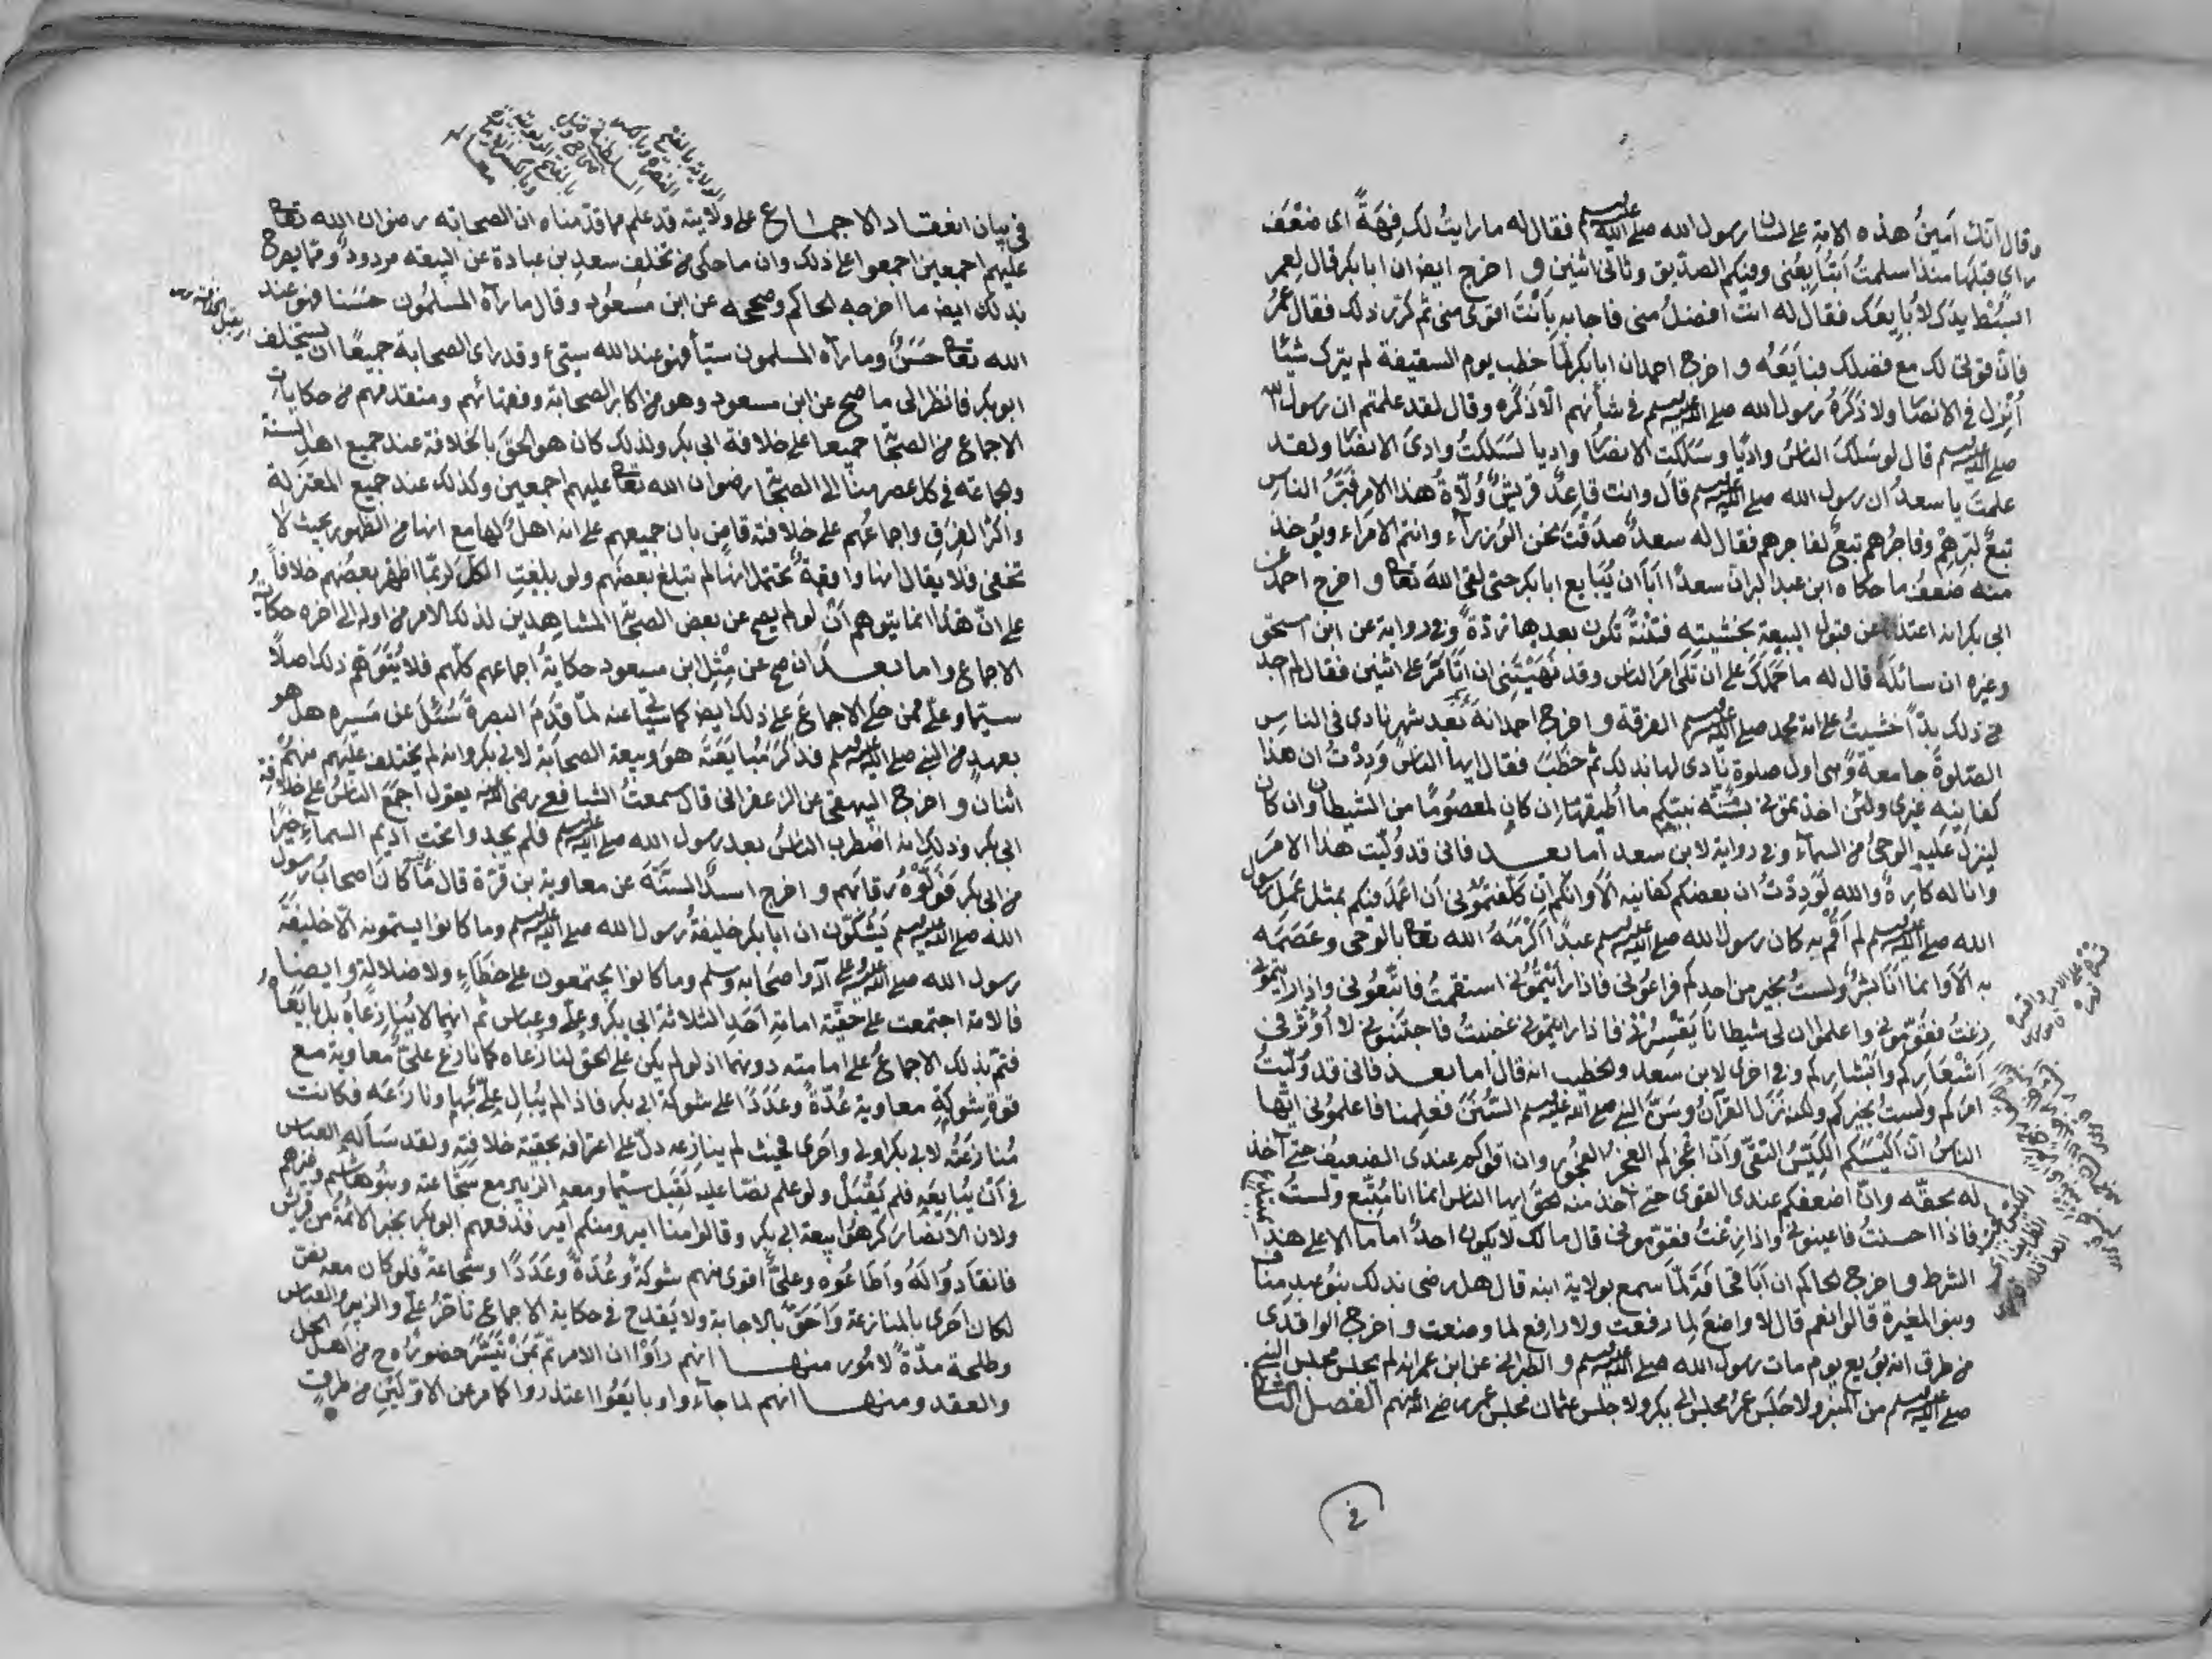 وقال انك امين هذه الامة على لسان رسول الله صلى الله عليه وسلم فقال له ما رايت لك فهة اى ضعف
راى قبلها منذ اسلمت اتبايعنى وفيكم الصديق وثانى اثنين واخرج ايضا ان ابا بكر قال لعمر
ابسط يدك لابايعك فقال له انت افضل منى فاجابه بانت اقوى منى ثم كرر ذلك فقال عمر
فان قوتى لك مع فضلك فبايعه واخرج احمد ان ابا بكر لما خطب يوم السقيفة لم يترك شيئا
انزل فى الانصار ولا ذكره رسول الله صلى الله عليه وسلم فى شأنهم الا ذكره وقال لقد علمتم ان رسول الله
صلى الله عليه وسلم قال لو سلك الناس واديا وسلكت الانصار واديا لسلكت وادى الانصار ولقد
علمت يا سعد ان رسول الله صلى الله عليه وسلم قال وانت قاعد قريش ولاة هذا الامر فبر الناس
تبع لبرهم وفاجرهم تبع لفاجرهم فقال له سعد صدقت نحن الوزراء وانتم الامراء ويؤخذ
منه ضعف ما حكاه ابن عبد البر ان سعدا ابا ان يبايع ابا بكر حتى لقى الله تعالى واخرج احمد عن
ابى بكر انه اعتذر عن قبول البيعة بخشيته فتنة تكون بعدها ردة وفى رواية عن ابن اسحق
وغيره ان سائله قال له ما حملك على ان تلى امر الناس وقد نهيتنى ان اتأمر على اثنين فقال لم اجد
من ذلك بدا خشيت على امة محمد صلى الله عليه وسلم الفرقة واخرج احمد انه بعد شهر نادى فى الناس
الصلوة جامعة وهى اول صلوة نادى لها بذلك ثم خطب فقال ايها الناس وددت ان هذا
كفانيه غيرى ولئن اخذتمونى بسنة نبيكم ما اطيقها ان كان لمعصوما من الشيطان وان كان
لينزل عليه الوحى من السماء وفى رواية لابن سعد اما بعد فانى قد وليت هذا الامر
وانا له كاره والله لوددت ان بعضكم كفانيه الا وانكم ان كلفتمونى ان اعمل فيكم بمثل عمل رسول
الله صلى الله عليه وسلم لم اقم به كان رسول الله صلى الله عليه وسلم عبدا اكرمه الله تعالى بالوحى وعصمه
به الا وانما انا بشر ولست بخير من احدكم فراعونى فاذا رايتمونى استقمت فاتبعونى واذا رايتمونى
زغت فقومونى واعلموا ان لى شيطانا فاذا رايتمونى غضبت فاجتنبونى لا اؤثر فى
اشعاركم وابشاركم وفى اخرى لابن سعد والخطيب انه قال اما بعد فانى قد وليت
امركم ولست بخيركم ولكنه نزل القرآن وسن النبى صلى الله عليه وسلم السنن فعلمنا فاعلمونى ايها
الناس ان اكيس الكيس التقى وان اعجز العجز الفجور وان اقواكم عندى الضعيف حتى آخذ
له بحقه وان اضعفكم عندى القوى حتى آخذ منه الحق ايها الناس انما انا متبع ولست بمبتدع
فاذا احسنت فاعينونى واذا زغت فقومونى قال مالك لا يكون احد اماما الا على هذا
الشرط واخرج الحاكم ان ابا قحافة لما سمع بولاية ابنه قال هل رضى بذلك بنو عبد مناف
وبنو المغيرة قالوا نعم قال لا واضع لما رفعت ولا رافع لما وضعت واخرج الواقدى
من طرق انه بويع يوم مات رسول الله صلى الله عليه وسلم والطبرانى عن ابن عمر انه لم يجلس مجلس النبى
صلى الله عليه وسلم من المنبر ولا جلس عمر مجلس ابى بكر ولا جلس عثمان مجلس عمر رضى الله عنهم الفصل الثانى
فى
فى بيان انعقاد الاجماع على ولايته قد علم مما قدمناه ان الصحابة رضوان الله تعالى
عليهم اجمعين اجمعوا على ذلك وان ما حكى من تخلف سعد بن عبادة عن البيعة مردود ومما يصرح
بذلك ايضا ما اخرجه الحاكم وصححه عن ابن مسعود وقال ما رآه المسلمون حسنا فهو عند
الله تعالى حسن وما رآه المسلمون سيأ فهو عند الله سيئ وقد راى الصحابة جميعا ان يستخلف
ابو بكر فانظر الى ما صح عن ابن مسعود وهو من اكابر الصحابة وفقهائهم ومتقدميهم من حكايات
الاجماع من الصحابة جميعا على خلافة ابى بكر ولذلك كان هو الحق بالخلافة عند جميع اهل السنة
وجماعته فى كل عصر منا الى الصحابة رضوان الله تعالى عليهم اجمعين وكذلك عند جميع المعتزلة
واكثر الفرق واجماعهم على خلافته قاض بان جميعهم على انه اهل لها مع انها من الظهور بحيث لا
تخفى فلا يقال انها واقعة تحتمل انها لم تبلغ بعضهم ولو بلغت الكل لربما اظهر بعضهم خلافا
على ان هذا انما يتوهم ان لو لم يصح عن بعض الصحابة المشاهدين لذلك الامر من اوله الى آخره حكاية
الاجماع واما بعد ان صح عن مثل ابن مسعود حكاية اجماعهم كلهم فلا يتوهم ذلك اصلا
سيما وعلى ممن حكى الاجماع على ذلك ايضا كما سيأتى عنه لما قدم البصرة سئل عن مسيره هل هو
بعهد من النبى صلى الله عليه وسلم فذكر مبايعته هو وبيعة الصحابة لابى بكر وانه لم يختلف عليهم منهم
اثنان واخرج البيهقى عن الزعفرانى قال سمعت الشافعى رضى الله عنه يقول اجمع الناس على خلافة
ابى بكر وذلك انه اضطرب الناس بعد رسول الله صلى الله عليه وسلم فلم يجدوا تحت اديم السماء خيرا
من ابى بكر فولوه رقابهم واخرج اسد السنة عن معاوية بن قرة قال ما كان اصحاب رسول
الله صلى الله عليه وسلم يشكون ان ابا بكر خليفة رسول الله صلى الله عليه وسلم وما كانوا يسمونه الا خليفة
رسول الله صلى الله عليه وعلى آله واصحابه وسلم وما كانوا يجتمعون على خطاء ولا ضلالة وايضا
فالامة اجتمعت على حقية امامة احد الثلاثة ابى بكر وعلى وعباس ثم انهما لا ينازعاه بل بايعاه
فتم بذلك الاجماع على امامته دونهما اذ لو لم يكن على الحق لنازعاه كما نازع على معاوية مع
قوة شوكة معاوية عدة وعددا على شوكة ابى بكر فاذا لم يبال على بها ونازعه فكانت
منازعته لابى بكر اولى واحرى فحيث لم ينازعه دل على اعترافه بحقية خلافته ولقد سأله العباس
فى ان يبايعه فلم يقبل ولو علم نصا عليه لقبل سيما ومعه الزبير مع شجاعته وبنو هاشم وغيرهم
ولان الانصار كرهوا بيعة ابى بكر وقالوا منا امير ومنكم امير فدفعهم ابو بكر بخبر الائمة من قريش
فانقادوا له واطاعوه وعلى اقوى منهم شوكة وعدة وعددا وشجاعة فلو كان معه نص
لكان احرى بالمنازعة واحق بالاجابة ولا يقدح فى حكاية الاجماع تاخر على والزبير والعباس
وطلحة مدة لامور منها انهم رأوا ان الامر تم بمن تيسر حضوره ح من اهل الحل
والعقد ومنها انهم لما جاءوا وبايعوا اعتذروا كما مر عن الاولين من طرق